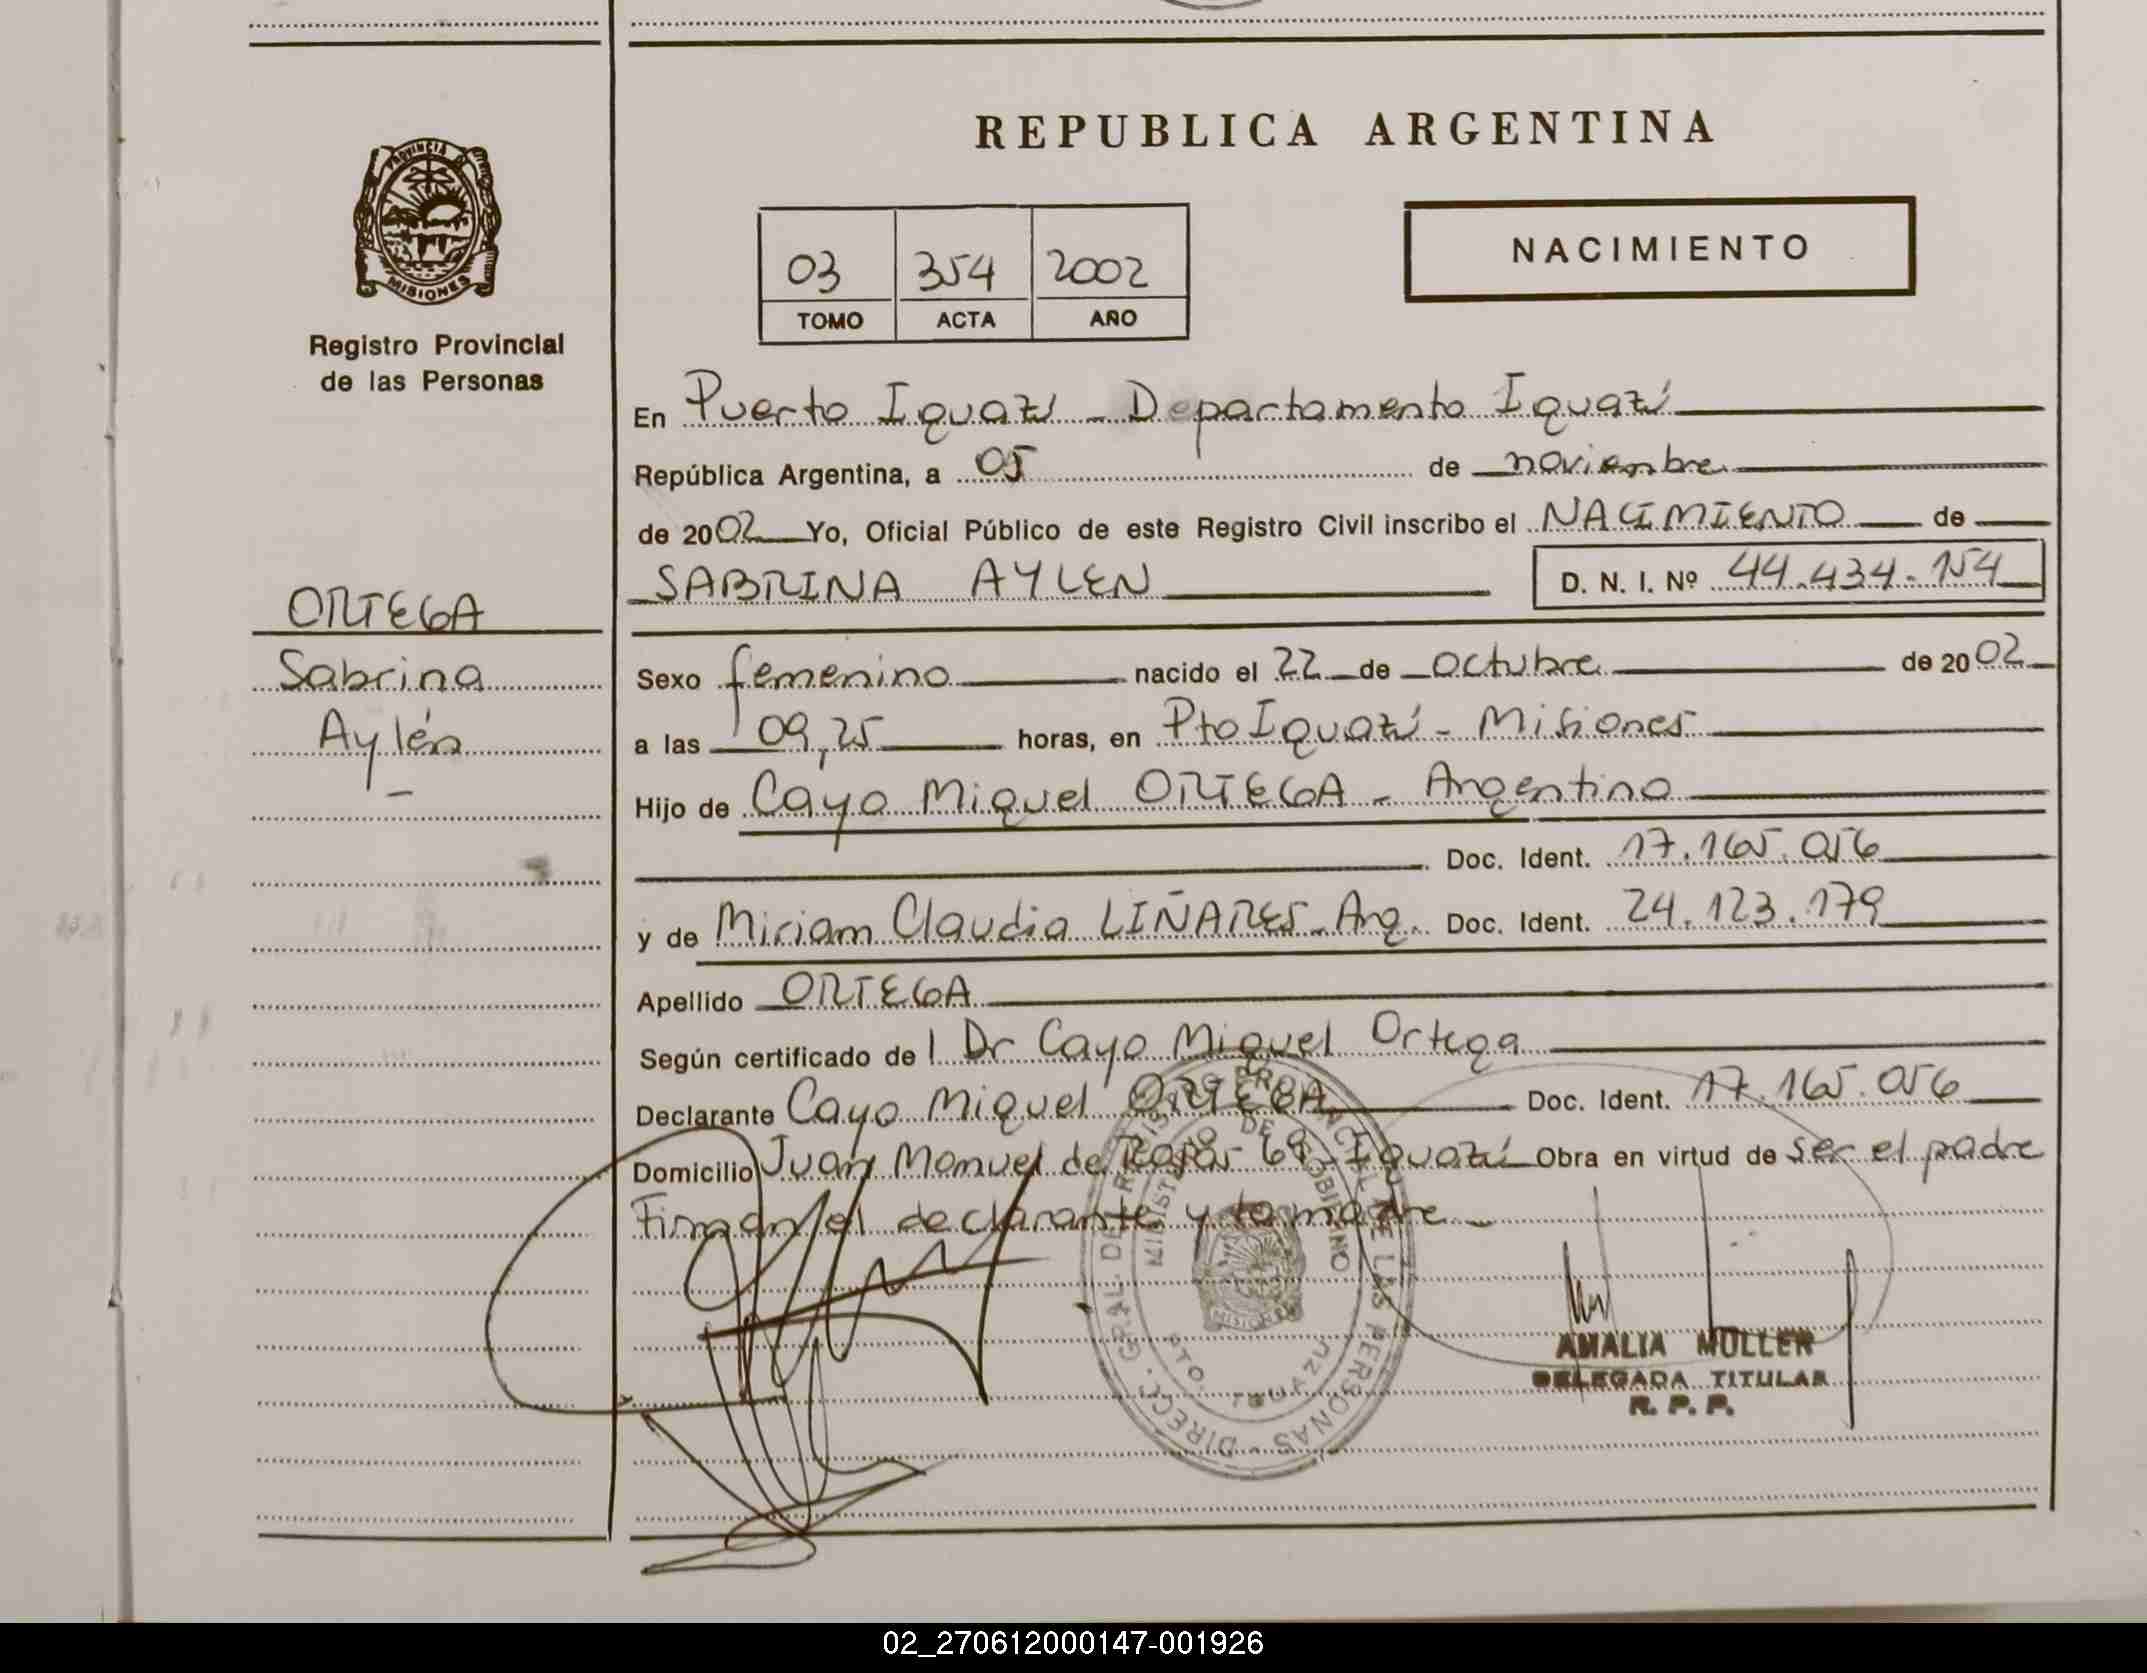 REPUBLICA ARGENTINA
PROVINCIA D MISIONES
Registro Provincial
de las Personas
NACIMIENTO
03 354 2002
TOMO ACTA AÑO
En Puerto Iguazú - Departamento Iguazú
República Argentina, a 05 de noviembre
de 2002 Yo, Oficial Público de este Registro Civil inscribo el NACIMIENTO de
SABRINA AYLEN D. N. I. Nº 44.434.154
ORTEGA
Sabrina
Aylén
Sexo femenino nacido el 22 de octubre de 2002
a las 09,25 horas, en Pto Iguazú - Misiones
Hijo de Cayo Miguel ORTEGA - Argentino
Doc. Ident. 17.165.056
y de Miriam Claudia LIÑARES - Arg. Doc. Ident. 24.123.179
Apellido ORTEGA
Según certificado de l Dr Cayo Miguel Ortega
Declarante Cayo Miguel ORTEGA Doc. Ident. 17.165.056
Domicilio Juan Manuel de Rosas 69 - Iguazú Obra en virtud de ser el padre
Firman el declarante y la madre -
DIRECC. GRAL. DE REGISTRO PROVINCIAL DE LAS PERSONAS
MINISTERIO DE GOBIERNO
MISIONES
PTO. IGUAZU
AMALIA MULLER
DELEGADA TITULAR
R. P. P.
02_270612000147-001926